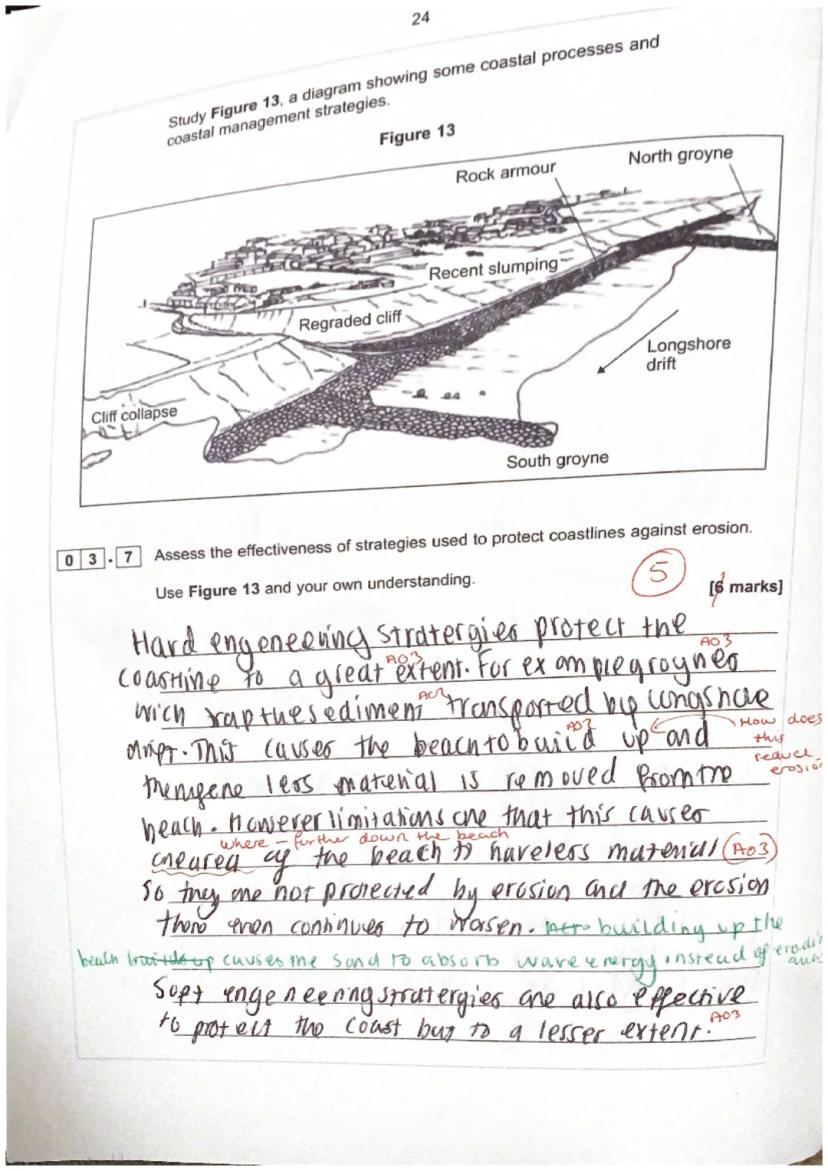 24
Study Figure 13, a diagram showing some coastal processes and
coastal management strategies.
Figure 13
Rock armour
North groyne
Recent slumping
Regraded cliff
Longshore
drift
Cliff collapse
South groyne
0 3 . 7 Assess the effectiveness of strategies used to protect coastlines against erosion.
Use Figure 13 and your own understanding.
5
[6 marks]
Hard engeneering stratergies protect the
AO3
coastline to a great extent. For example groynes
AO3
wich trap the sediment transported by longshore
AO2
drift. This causes the beach to build up and
AO2
How does
this
reduce
erosion
therefore less material is removed from the
beach. However limitations are that this causes
where - further down the beach
one area of the beach to have less material
AO3
so they are not protected by erosion and the erosion
there even continues to worsen. building up the
beach builds up causes the sand to absorb wave energy instead of
Soft engeneering stratergies are also effective
to protect the coast but to a lesser extent.
AO3